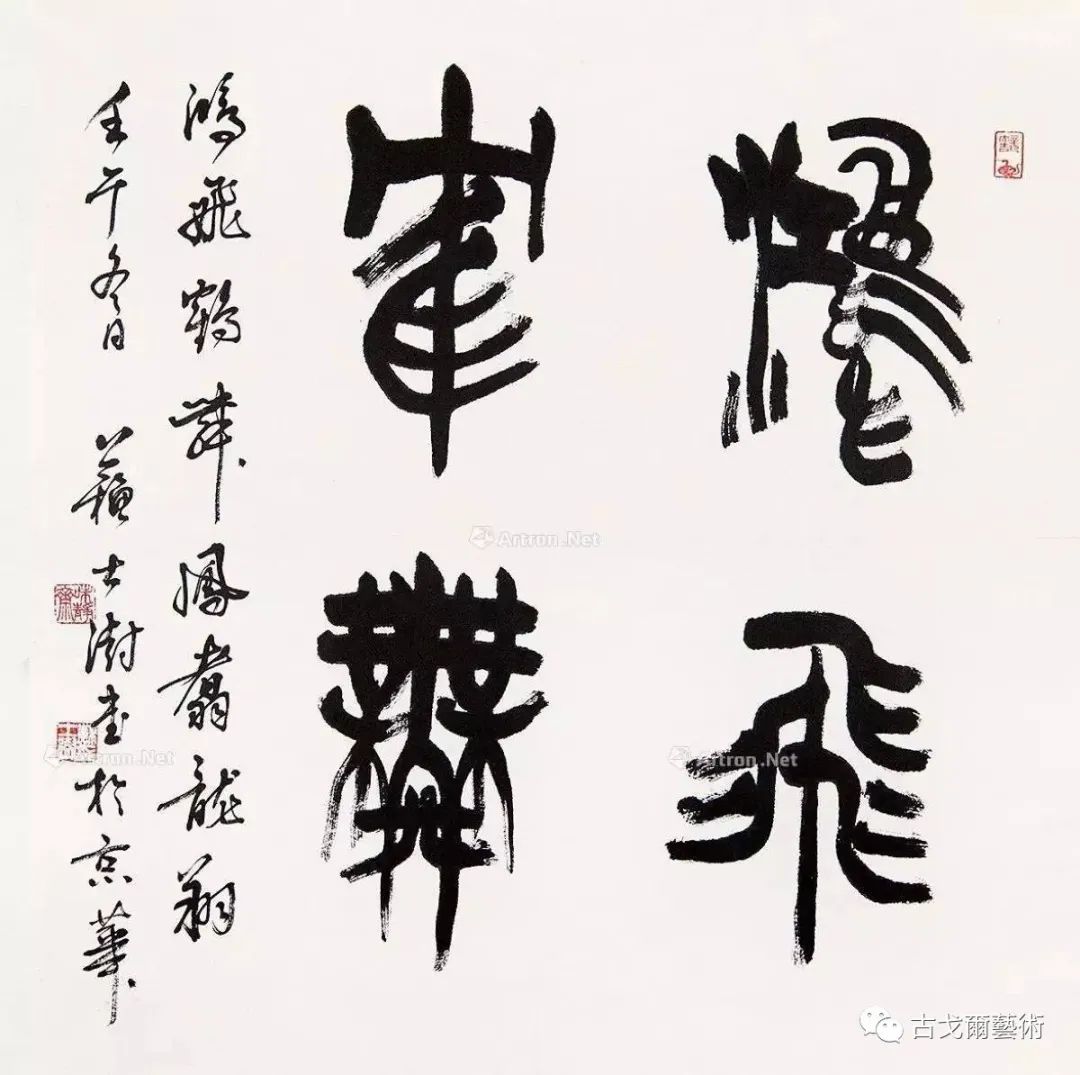 鴻飛
隺舞
鴻飛鶴舞鳳翥龍翔
壬午冬日 蘇士澍書於京華
Artron.Net
Artron.Net
Artron.Net
古戈爾藝術